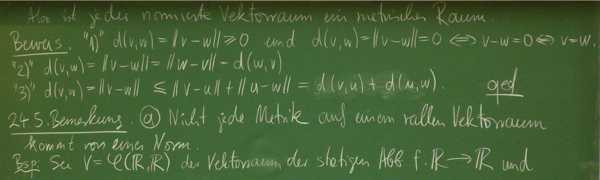 Also ist jeder normierte Vektorraum ein metrischer Raum.
Beweis. "1)" d(v,w) = ||v-w|| ≥ 0 und d(v,w) = ||v-w|| = 0 ⇔ v-w = 0 ⇔ v = w.
"2)" d(v,w) = ||v-w|| = ||w-v|| = d(w,v)
"3)" d(v,w) = ||v-w|| ≤ ||v-u|| + ||u-w|| = d(v,u) + d(u,w). qed
24.5. Bemerkung. ⓐ Nicht jede Metrik auf einem reellen Vektorraum
kommt von einer Norm.
Bsp: Sei V = C(ℝ,ℝ) der Vektorraum der stetigen Abb f: ℝ → ℝ und